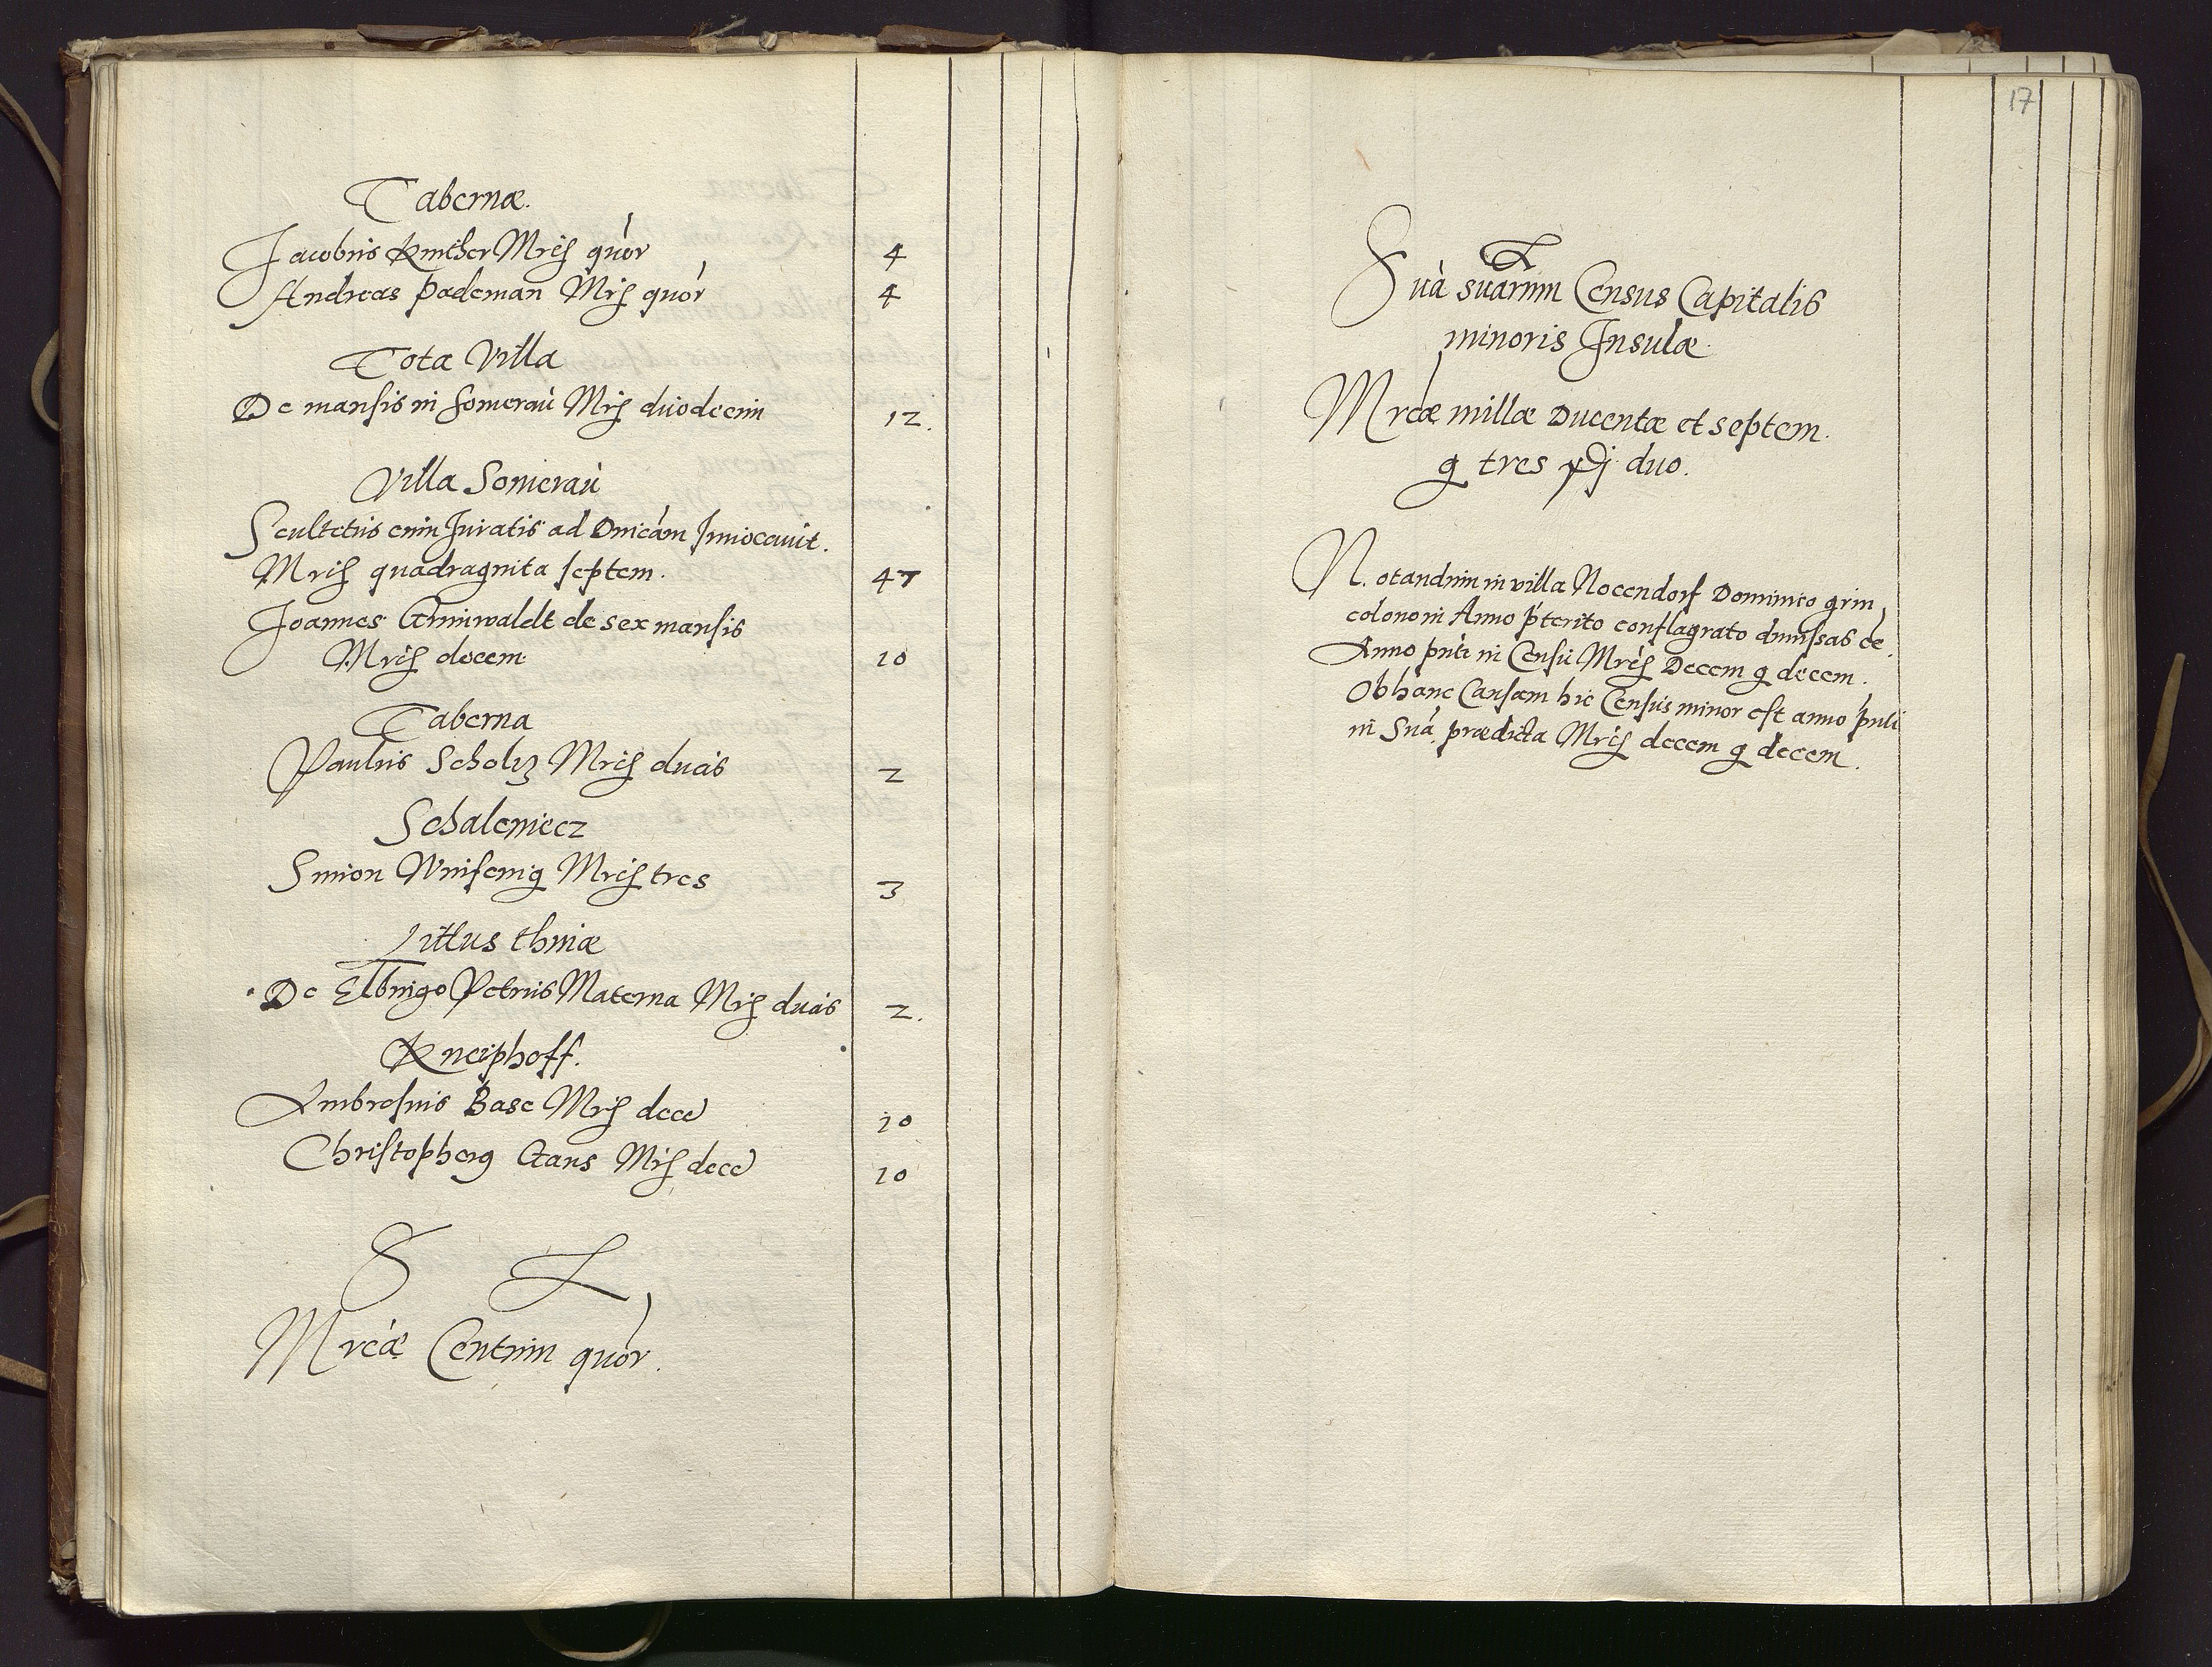 Tabernæ.
Jacobus Kinther Mrcs quor 4
Andreas Pademan Mrs quor 4
Tota Villa
De mansis in Somerau Mrs duodecim 12.
Villa Somerau
Scultetus cum Juratis ad Dnicam Invocavit.
Mrcs quadraginta septem. 47
Joannes Grunwaldt de sex mansis
Mrcs decem 10
Taberna
Paulus Scholtz Mrcs duas 2
Schaleniecz
Simon Wnisenig Mrcs tres 3
Littus thiniæ
De Elbingo Petrus Materna Mrs duas 2.
Kneiphoff.
Ambrosius Base Mrs dece 10
Christopherg Gans Mrs dece 10
S
Mrcæ Centum quor.
17
Sua suarum Census Capitalis
minoris Insulæ.
Mrcæ millæ Ducentæ et septem.
g tres duo.
N. otandum in villa Nocendorf Dominico grin
colono in Anno pterito conflagrato dimissas ee
Anno pnti in Censu Mrcs Decem g decem.
Ob hanc Causam hic Census minor est anno pnti
in Sua prædicta Mrcs decem g decem.